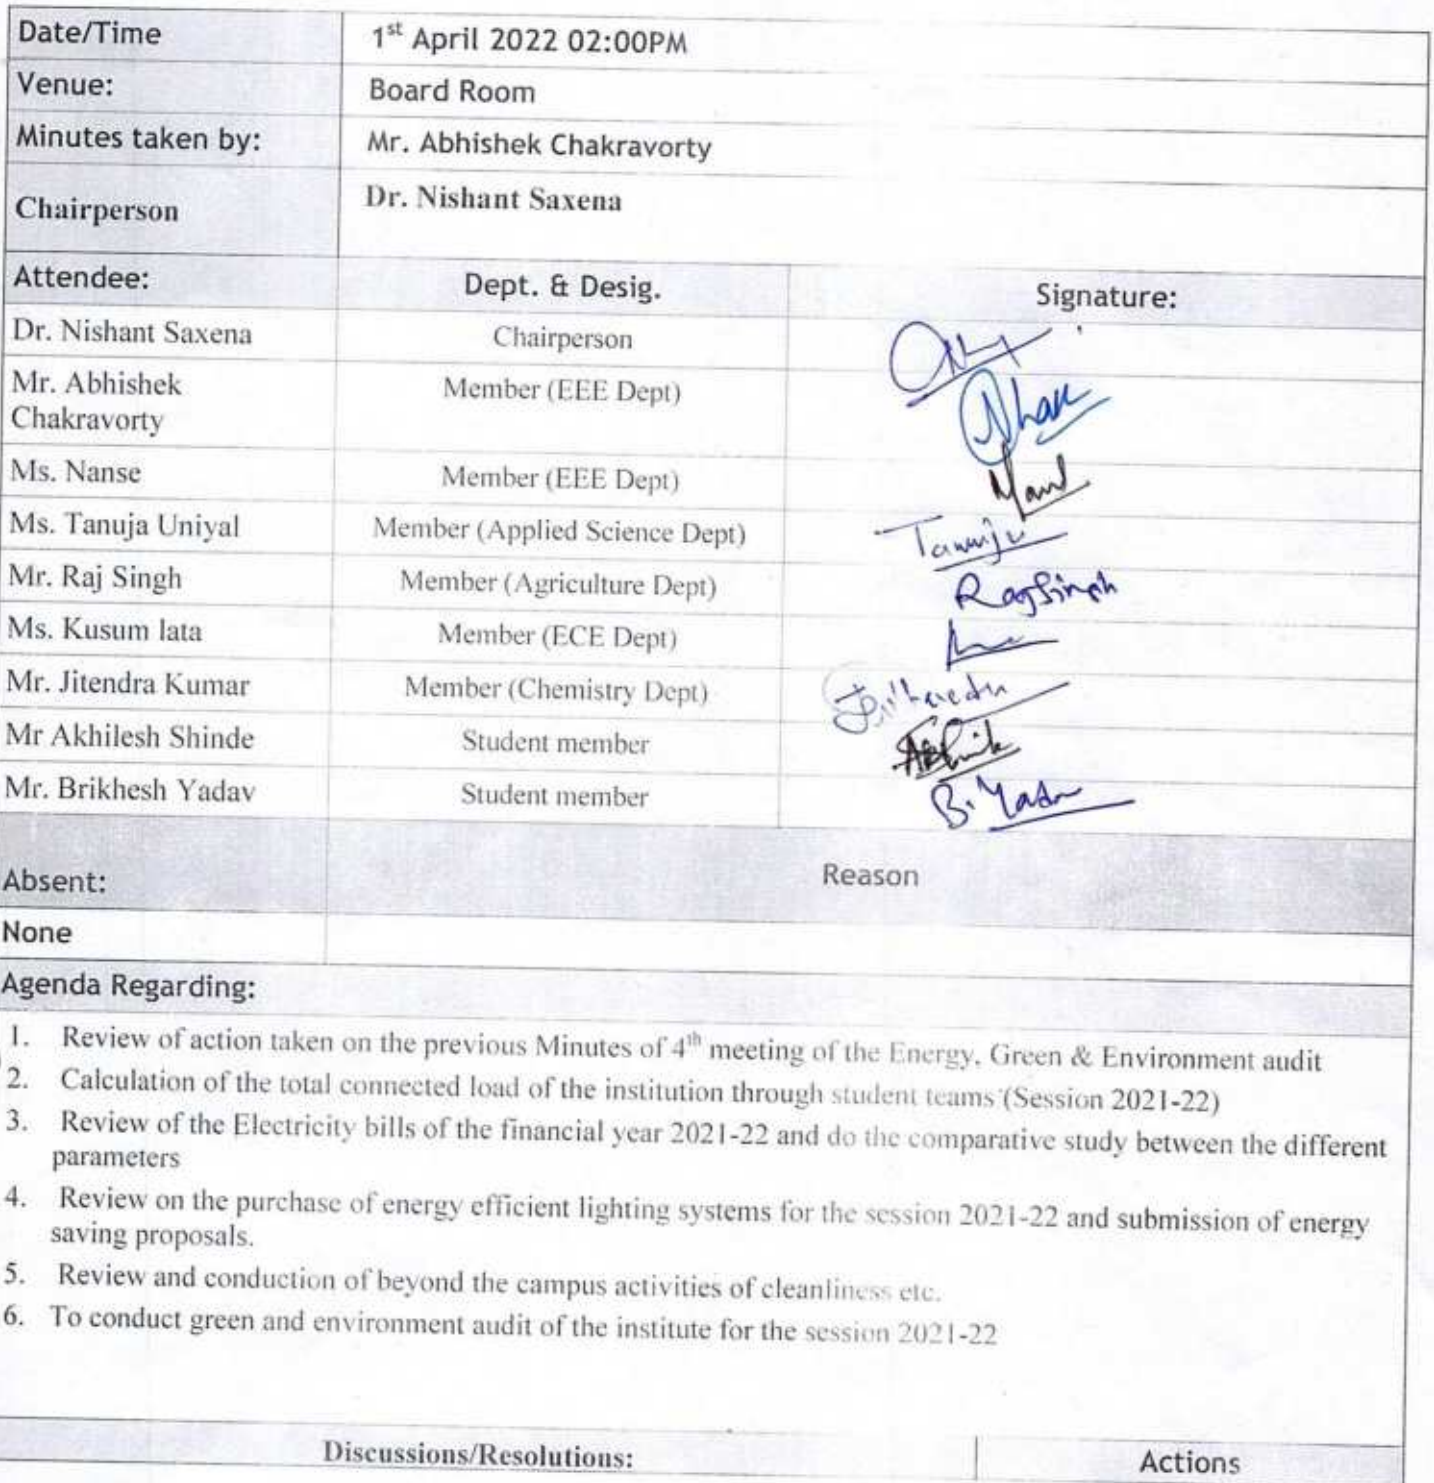 Date/Time 1st April 2022 02:00PM
Venue: Board Room
Minutes taken by: Mr. Abhishek Chakravorty
Chairperson Dr. Nishant Saxena
Attendee: Dept. & Desig. Signature:
Dr. Nishant Saxena Chairperson
Mr. Abhishek
Chakravorty Member (EEE Dept)
Ms. Nanse Member (EEE Dept)
Ms. Tanuja Uniyal Member (Applied Science Dept)
Mr. Raj Singh Member (Agriculture Dept) Raj Singh
Ms. Kusum lata Member (ECE Dept)
Mr. Jitendra Kumar Member (Chemistry Dept)
Mr Akhilesh Shinde Student member
Mr. Brikhesh Yadav Student member B. Yadav
Absent: Reason
None
Agenda Regarding:
1. Review of action taken on the previous Minutes of 4th meeting of the Energy, Green & Environment audit
2. Calculation of the total connected load of the institution through student teams (Session 2021-22)
3. Review of the Electricity bills of the financial year 2021-22 and do the comparative study between the different
parameters
4. Review on the purchase of energy efficient lighting systems for the session 2021-22 and submission of energy
saving proposals.
5. Review and conduction of beyond the campus activities of cleanliness etc.
6. To conduct green and environment audit of the institute for the session 2021-22
Discussions/Resolutions: Actions